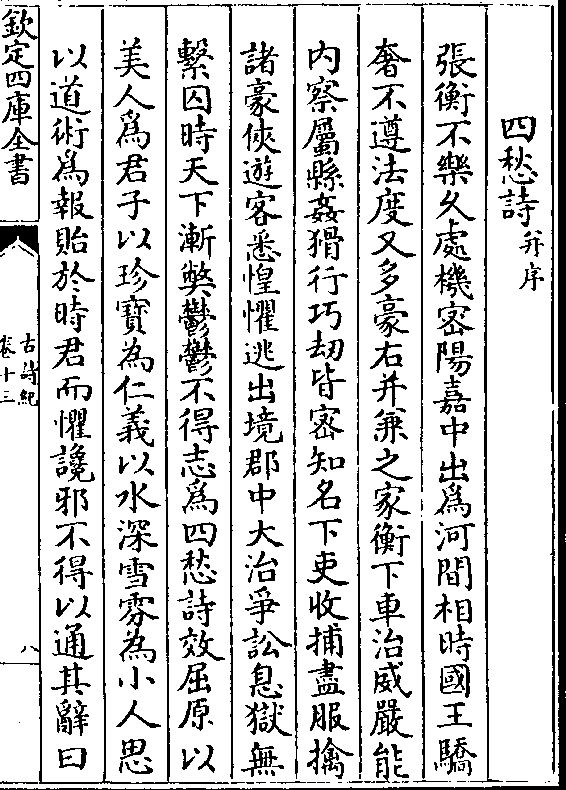 四愁詩并序
張衡不樂久處機宻陽嘉中出爲河間相時國王驕
奢不遵法度又多豪右并兼之家衡下車治威嚴能
内察屬縣姦猾行巧刼皆宻知名下吏收捕盡服擒
諸豪俠遊客悉惶懼逃出境郡中大治爭訟息獄無
繫囚時天下漸弊鬱鬱不得志爲四愁詩效屈原以
美人爲君子以珍寶為仁義以水深雪雰為小人思
以道術爲報貽於時君而懼讒邪不得以通其辭曰
欽定四庫全書
古詩紀
卷十三
八